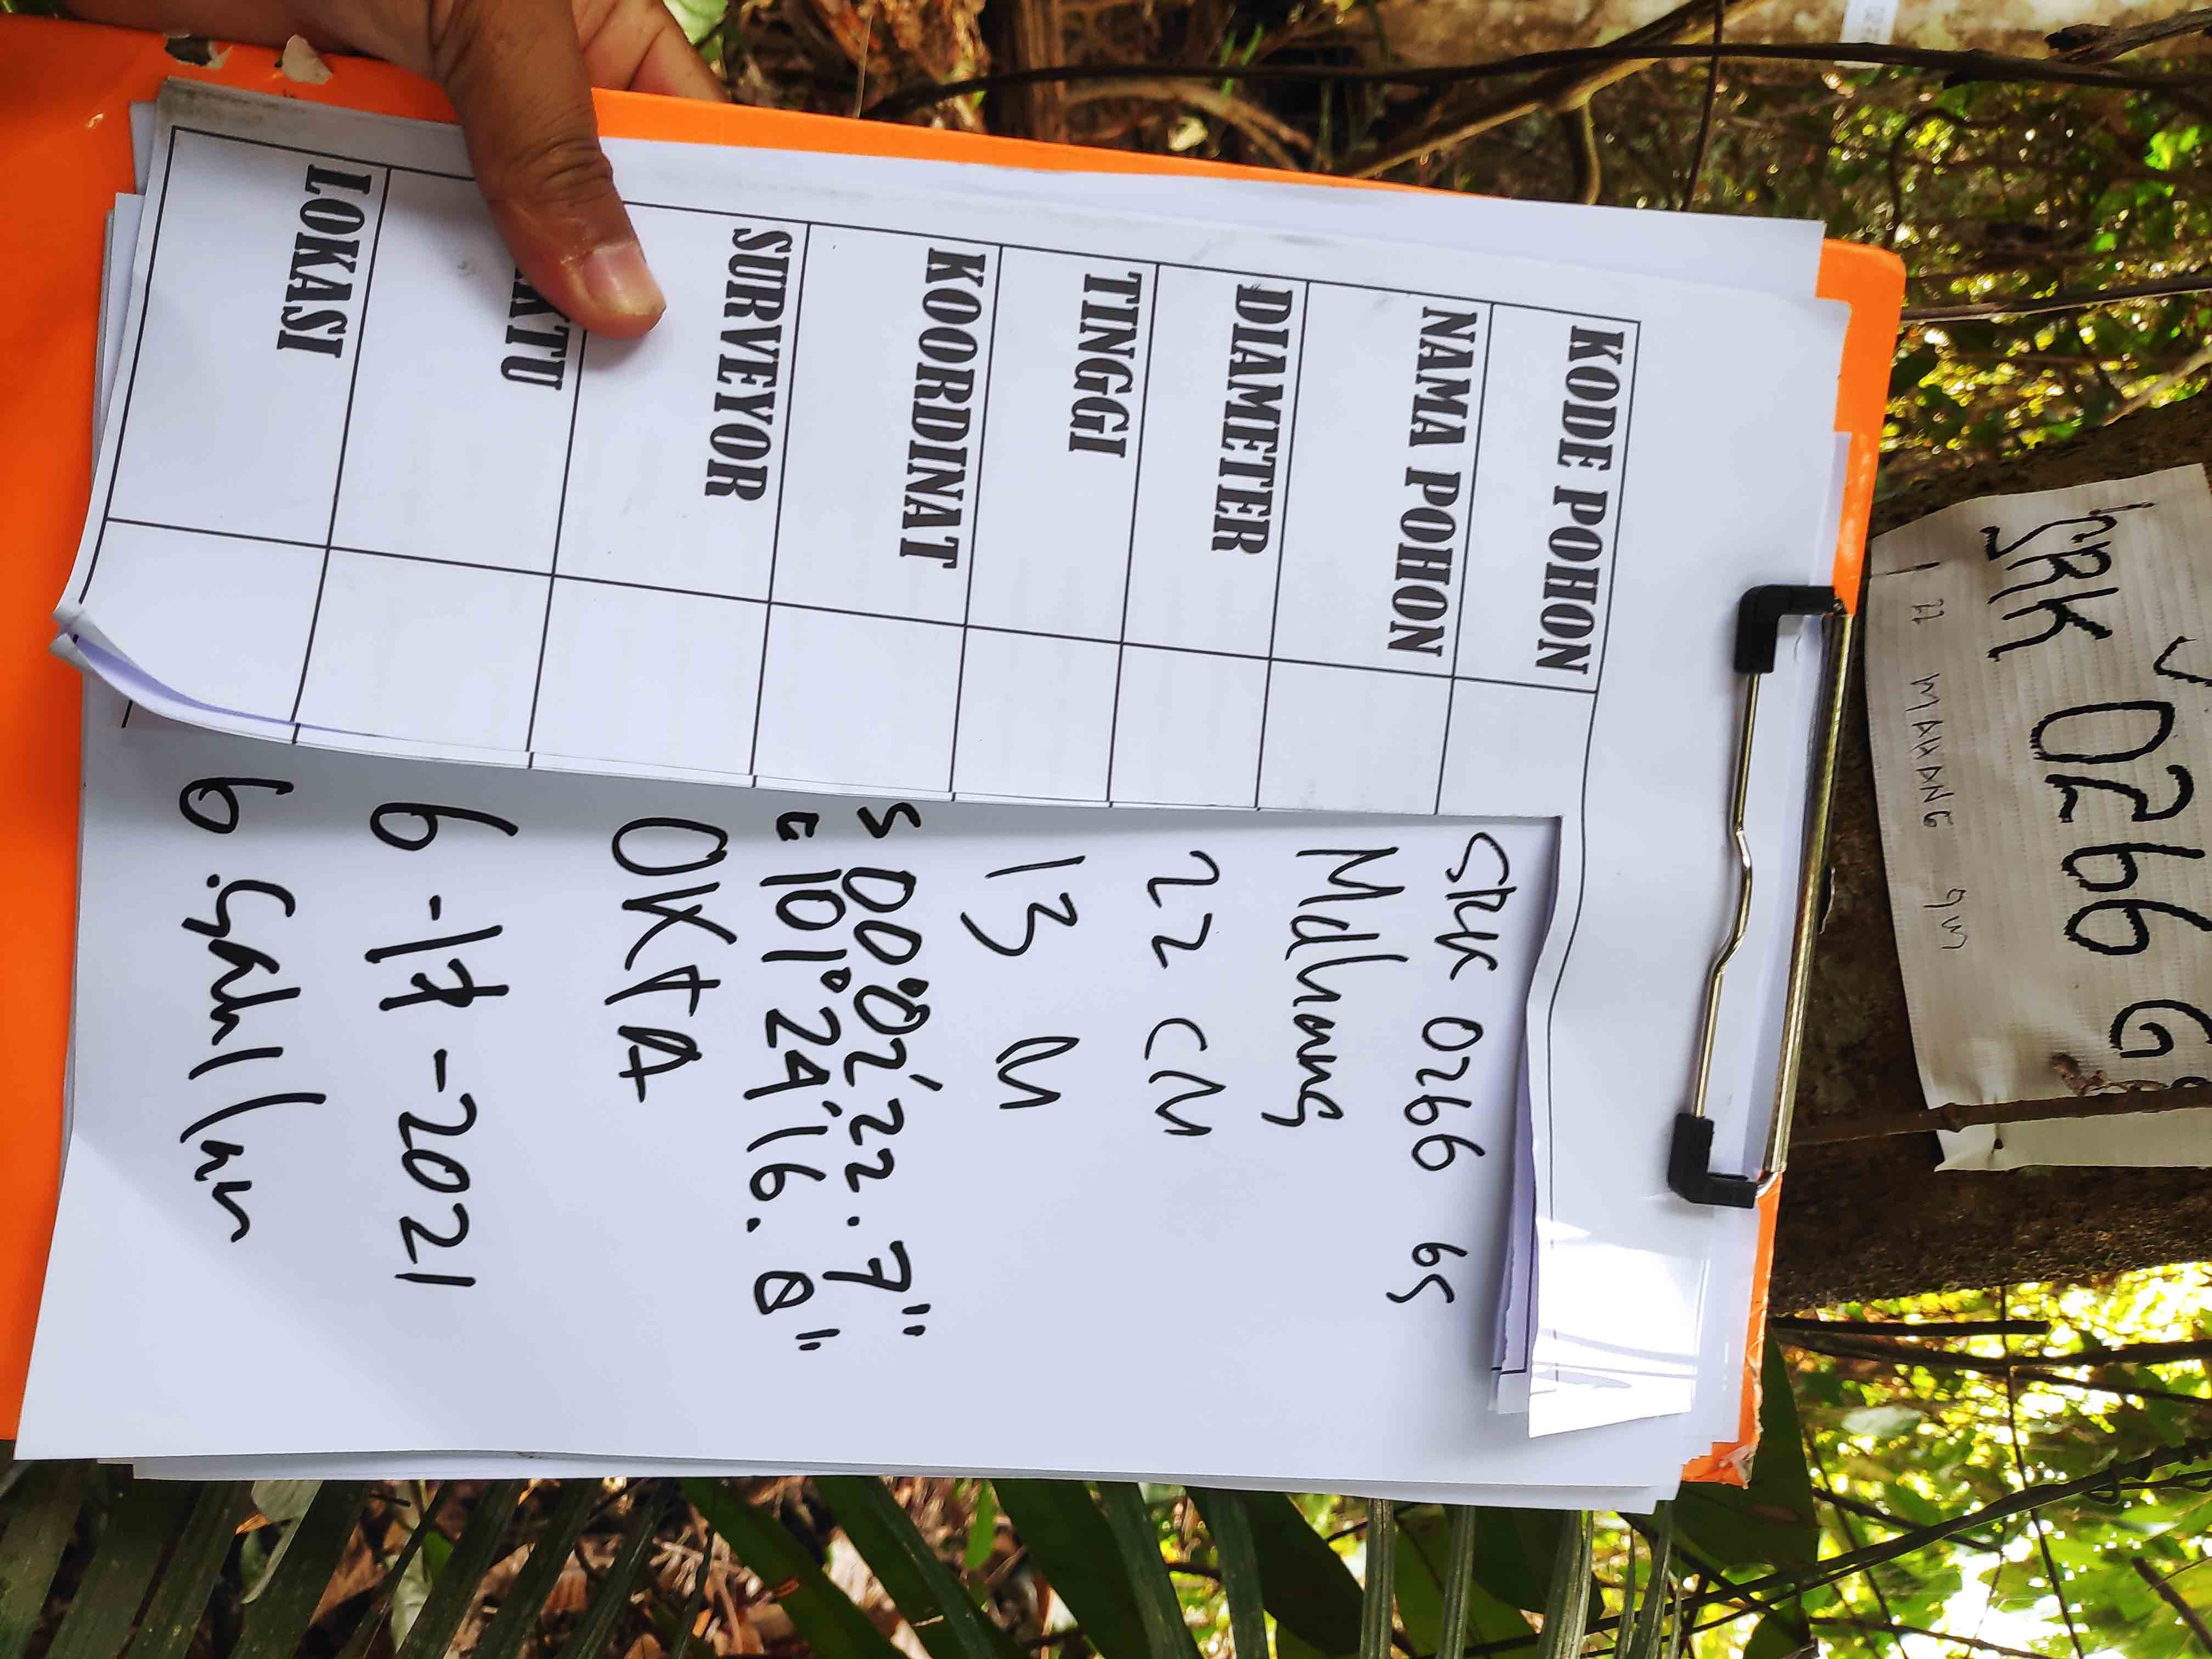 SRK 0266 G
22 MAHANG 9m
KODE POHON SRK 0266 GS
NAMA POHON Mahang
DIAMETER 22 CM
TINGGI 13 M
KOORDINAT S 00°02'22.7"
E 101°24'16.8"
SURVEYOR OKTA
KTU 6 - -2021
LOKASI G.Sahilan